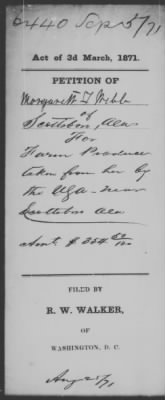 6440 Sep 5/71
Act of 3d March, 1871.
PETITION OF
Margarett T Webb
of
Scottsboro, Ala
For
Farm Produce
taken from her by
the USA - near
Scottsboro Ala
Amt. $ 254
FILED BY
R. W. WALKER,
OF
WASHINGTON, D. C.
Aug 25/71